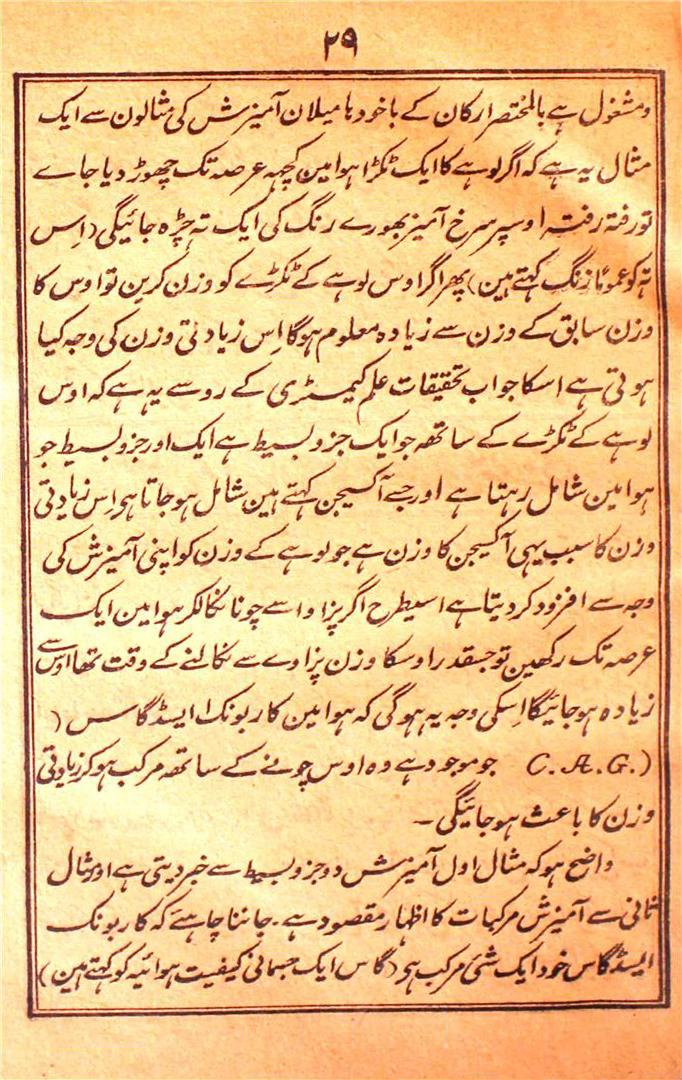 ۲۹
ومشغول ہے بالمختصر ارکان کے باخودہا میلان آمیزش کی مثالون سے ایک
مثال یہ ہے کہ اگر لوہے کا ایک ٹکڑا ہوا مین کچہہ عرصہ تک چھوڑ دیا جاے
تو رفتہ رفتہ اوسپر سرخ آمیز بھورے رنگ کی ایک تہ چڑہ جائیگی (اِس
تہ کو عموماً زنگ کہتے ہین) پھر اگر اوس لوہے کے ٹکڑے کو وزن کرین تو اوس کا
وزن سابق کے وزن سے زیادہ معلوم ہوگا اِس زیادتی وزن کی وجہ کیا
ہوتی ہے اسکا جواب تحقیقات علم کیمسٹری کے رو سے یہ ہے کہ اوس
لوہے کے ٹکڑے کے ساتھہ جو ایک جزو بسیط ہے ایک اور جزو بسیط جو
ہوا مین شامل رہتا ہے اور جسے آکسیجن کہتے ہین شامل ہو جاتا ہی اِس زیادتی
وزن کا سبب یہی آکسیجن کا وزن ہے جو لوہے کے وزن کو اپنی آمیزش کی
وجہ سے افزود کر دیتا ہے اسیطرح اگر پزاوا سے چونا نکالکر ہوا مین ایک
عرصہ تک رکھین تو جسقدر اوسکا وزن پزاوے سے نکالنے کے وقت تھا اوس سے
زیادہ ہو جائیگا اِسکی وجہ یہ ہوگی کہ ہوا مین کاربونک ایسڈ گاس (
C.A.G.) جو موجود ہے وہ اوس چونے کے ساتھہ مرکب ہو کر زیادتی
وزن کا باعث ہو جائیگی ۔
واضح ہو کہ مثال اول آمیزش دو جزو بسیط سے خبر دیتی ہے اور مثال
ثانی سے آمیزش مرکبات کا اظہار مقصود ہے ۔ جاننا چاہئے کہ کاربونک
ایسڈ گاس خود ایک شئ مرکب ہی (گاس ایک جسمانی کیفیت ہوائیہ کو کہتے ہین)